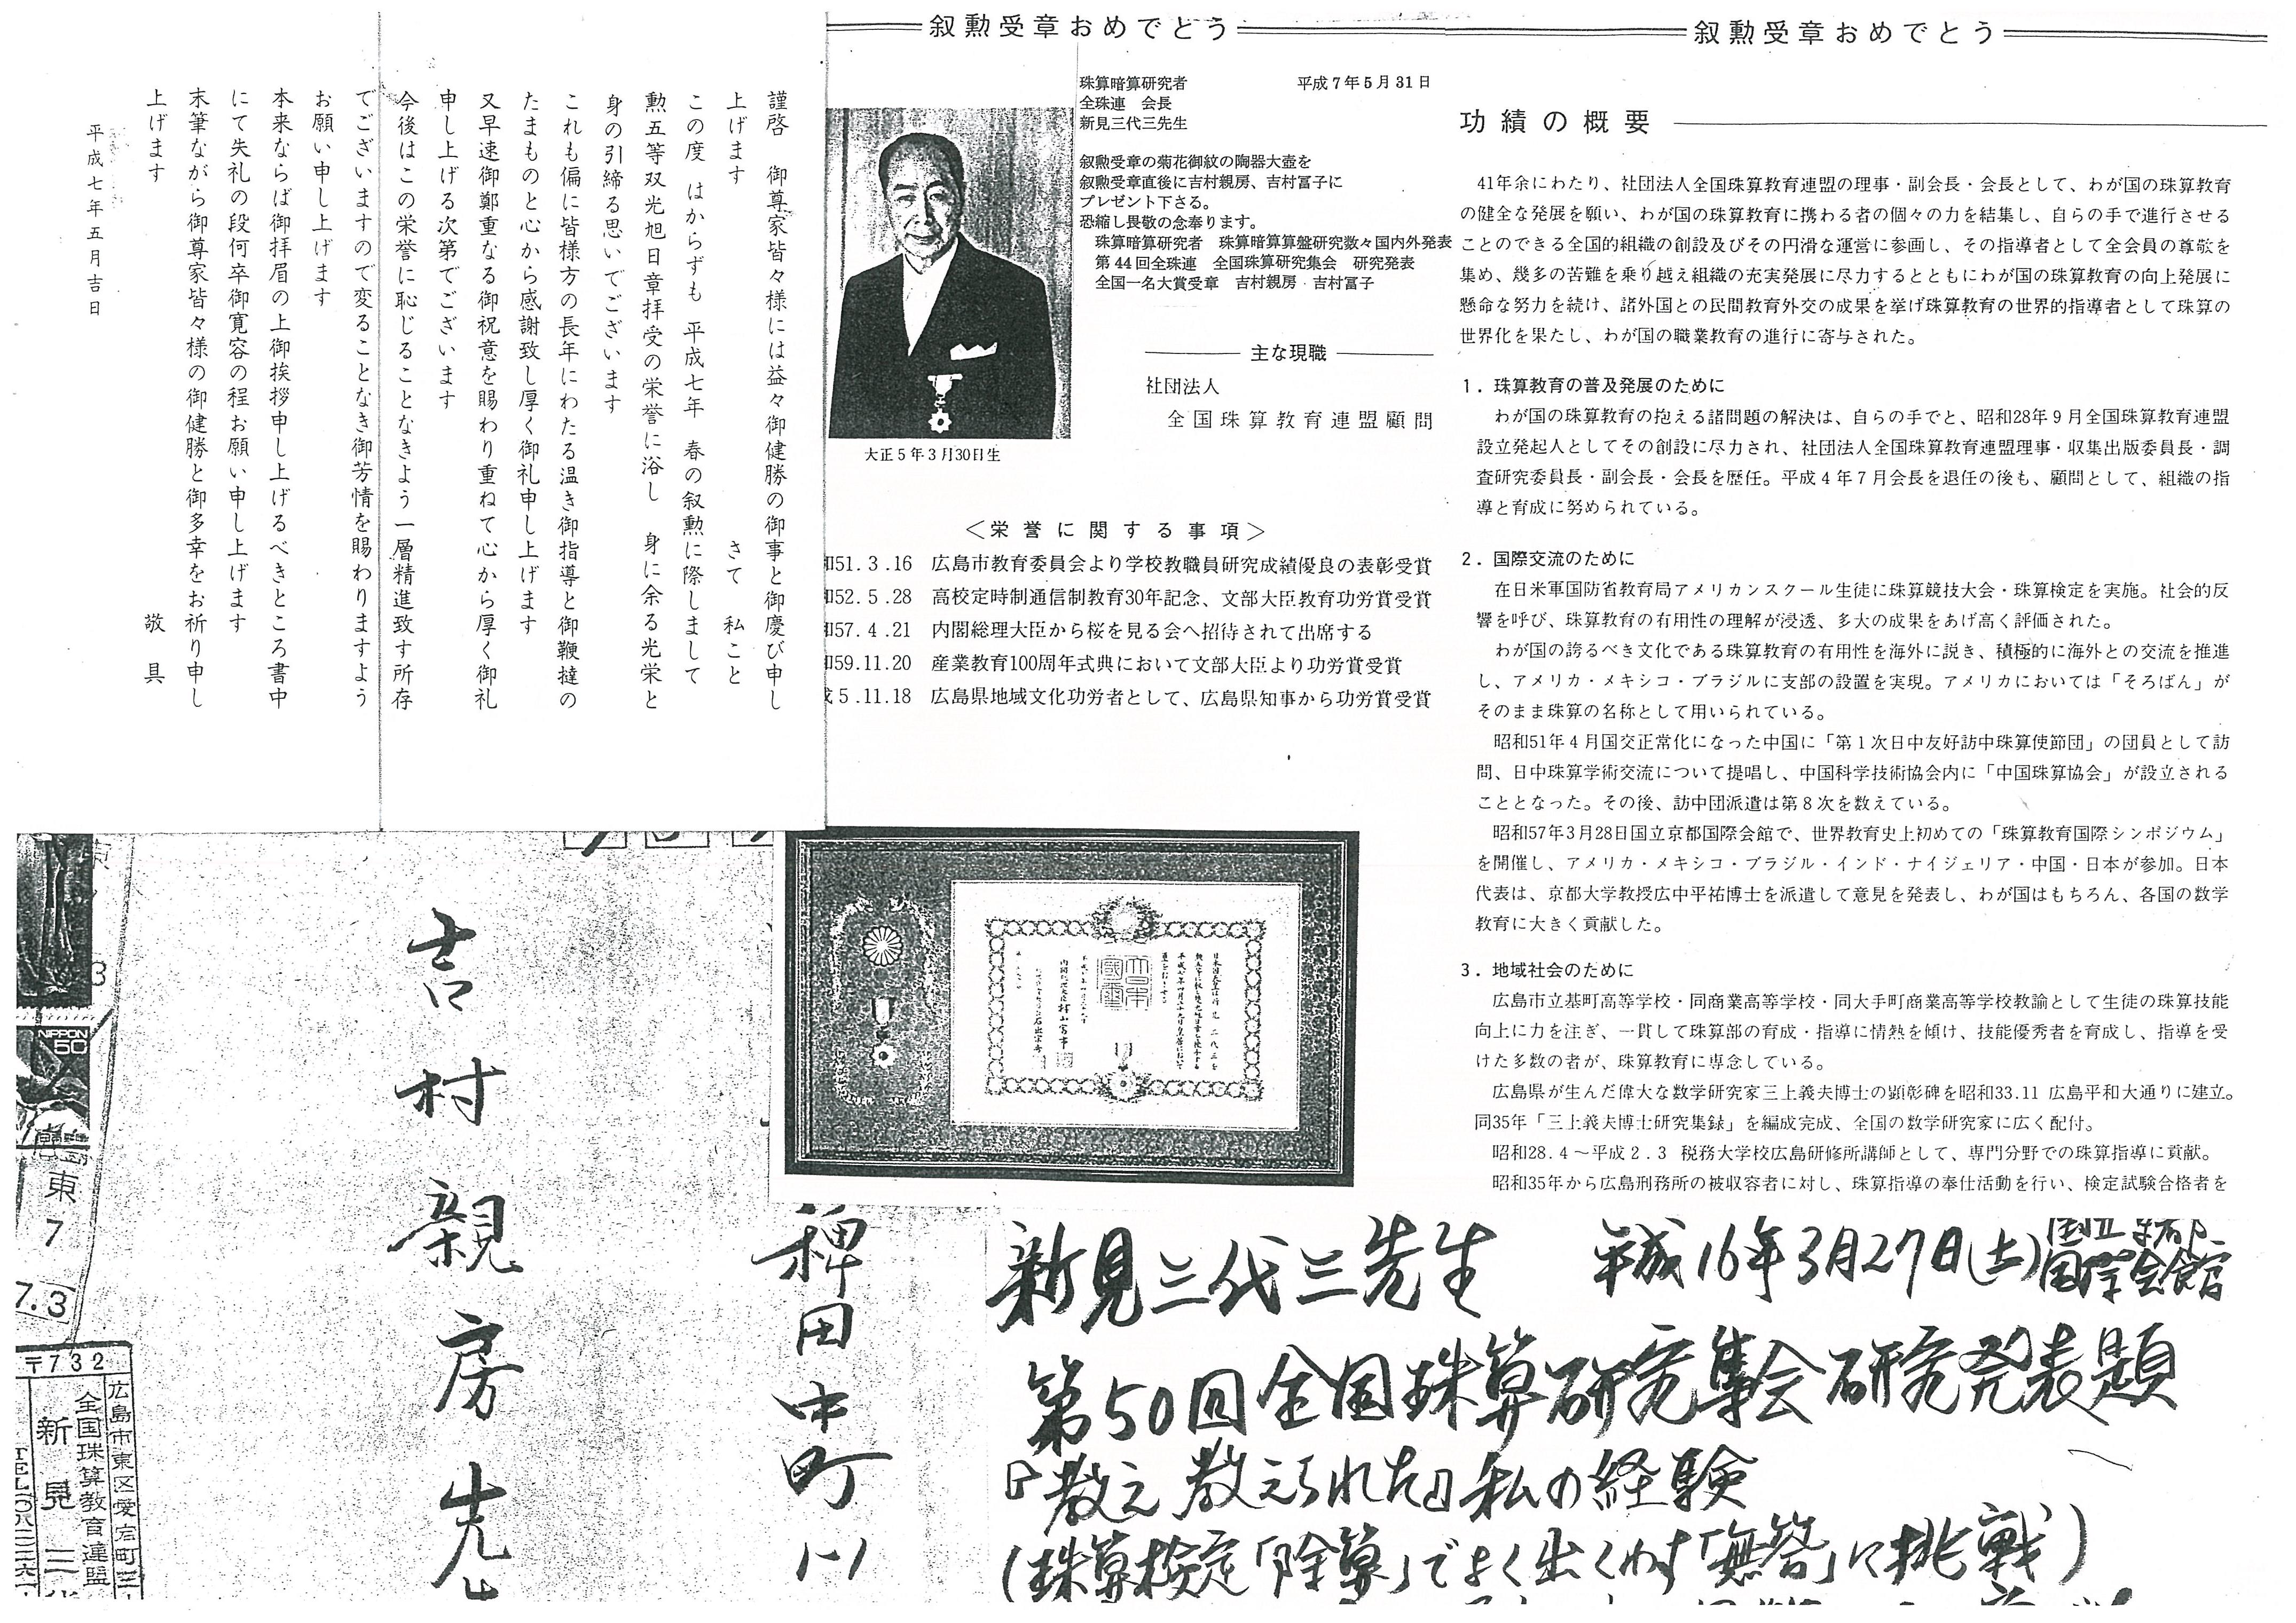 謹啓　御尊家皆々様には益々御健勝の御事と御慶び申し
上げます　さて　私こと
この度　はからずも　平成七年　春の叙勲に際しまして
勲五等双光旭日章拝受の栄誉に浴し　身に余る光栄と
身の引締る思いでございます
これも偏に皆様方の長年にわたる温き御指導と御鞭撻の
たまものと心から感謝致し厚く御礼申し上げます
又早速御鄭重なる御祝意を賜わり重ねて心から厚く御礼
申し上げる次第でございます
今後はこの栄誉に恥じることなきよう一層精進致す所存
でございますので変ることなき御芳情を賜わりますよう
お願い申し上げます
本来ならば御拝眉の上御挨拶申し上げるべきところ書中
にて失礼の段何卒御寛容の程お願い申し上げます
末筆ながら御尊家皆々様の御健勝と御多幸をお祈り申し
上げます
敬具
平成七年五月吉日
叙勲受章おめでとう
珠算暗算研究者　平成7年5月31日
全珠連　会長
新見三代三先生
叙勲受章の菊花御紋の陶器大壺を
叙勲受章直後に吉村親房、吉村冨子に
プレゼント下さる。
恐縮し畏敬の念奉ります。
珠算暗算研究者　珠算暗算算盤研究数々国内外発表
第44回全珠連　全国珠算研究集会　研究発表
全国一名大賞受章　吉村親房・吉村冨子
主な現職
社団法人
全国珠算教育連盟顧問
大正5年3月30日生
＜栄誉に関する事項＞
和51.3.16　広島市教育委員会より学校教職員研究成績優良の表彰受賞
和52.5.28　高校定時制通信制教育30年記念、文部大臣教育功労賞受賞
和57.4.21　内閣総理大臣から桜を見る会へ招待されて出席する
和59.11.20　産業教育100周年式典において文部大臣より功労賞受賞
成5.11.18　広島県地域文化功労者として、広島県知事から功労賞受賞
叙勲受章おめでとう
功績の概要
41年余にわたり、社団法人全国珠算教育連盟の理事・副会長・会長として、わが国の珠算教育
の健全な発展を願い、わが国の珠算教育に携わる者の個々の力を結集し、自らの手で進行させる
ことのできる全国的組織の創設及びその円滑な運営に参画し、その指導者として全会員の尊敬を
集め、幾多の苦難を乗り越え組織の充実発展に尽力するとともにわが国の珠算教育の向上発展に
懸命な努力を続け、諸外国との民間教育外交の成果を挙げ珠算教育の世界的指導者として珠算の
世界化を果たし、わが国の職業教育の進行に寄与された。
1．珠算教育の普及発展のために
わが国の珠算教育の抱える諸問題の解決は、自らの手でと、昭和28年9月全国珠算教育連盟
設立発起人としてその創設に尽力され、社団法人全国珠算教育連盟理事・収集出版委員長・調
査研究委員長・副会長・会長を歴任。平成4年7月会長を退任の後も、顧問として、組織の指
導と育成に努められている。
2．国際交流のために
在日米軍国防省教育局アメリカンスクール生徒に珠算競技大会・珠算検定を実施。社会的反
響を呼び、珠算教育の有用性の理解が浸透、多大の成果をあげ高く評価された。
わが国の誇るべき文化である珠算教育の有用性を海外に説き、積極的に海外との交流を推進
し、アメリカ・メキシコ・ブラジルに支部の設置を実現。アメリカにおいては「そろばん」が
そのまま珠算の名称として用いられている。
昭和51年4月国交正常化になった中国に「第1次日中友好訪中珠算使節団」の団員として訪
問、日中珠算学術交流について提唱し、中国科学技術協会内に「中国珠算協会」が設立される
こととなった。その後、訪中団派遣は第8次を数えている。
昭和57年3月28日国立京都国際会館で、世界教育史上初めての「珠算教育国際シンポジウム」
を開催し、アメリカ・メキシコ・ブラジル・インド・ナイジェリア・中国・日本が参加。日本
代表は、京都大学教授広中平祐博士を派遣して意見を発表し、わが国はもちろん、各国の数学
教育に大きく貢献した。
3．地域社会のために
広島市立基町高等学校・同商業高等学校・同大手町商業高等学校教諭として生徒の珠算技能
向上に力を注ぎ、一貫して珠算部の育成・指導に情熱を傾け、技能優秀者を育成し、指導を受
けた多数の者が、珠算教育に専念している。
広島県が生んだ偉大な数学研究家三上義夫博士の顕彰碑を昭和33.11 広島平和大通りに建立。
同35年「三上義夫博士研究集録」を編成完成、全国の数学研究家に広く配付。
昭和28.4～平成2.3 税務大学校広島研修所講師として、専門分野での珠算指導に貢献。
昭和35年から広島刑務所の被収容者に対し、珠算指導の奉仕活動を行い、検定試験合格者を
稗田中町
吉村親房先
NIPPON
50
東
7
7.3
〒732
広島市東区愛宕町
全国珠算教育連盟
新見三
新見三代三先生　平成16年3月27日(土)国立京都国際会館
第50回全国珠算研究集会研究発表題
『教え教えられた』私の経験
(珠算検定「除算」でよく出くわす「無答」に挑戦)